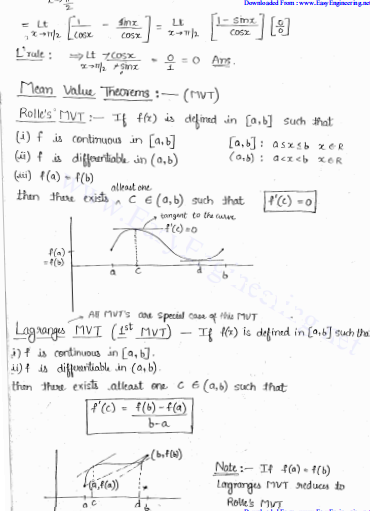 Downloaded From : www.EasyEngineering.net
x→π/2
= Lt x→π/2 [1/cosx - sinx/cosx] = Lt x→π/2 [1-sinx/cosx] [0/0]
L'rule : ⇒ Lt x→π/2 +cosx/+sinx = 0/1 = 0 Ans.
Mean Value Theorems :- (MVT)
Rolle's MVT :- If f(x) is defined in [a,b] such that
(i) f is continuous in [a,b] [a,b] : a≤x≤b x∈R
(ii) f is differentiable in (a,b) (a,b) : a<x<b x∈R
(iii) f(a) = f(b)
then there exists atleast one C ∈ (a,b) such that f'(c) = 0
tangent to the curve
f'(c)=0
f(a)
=f(b)
a c d b
www.EasyEngineering.net
All MVT's are special case of this MVT
Lagranges MVT (1st MVT) - If f(x) is defined in [a,b] such tha
i) f is continuous in [a,b].
ii) f is differentiable in (a,b).
then there exists atleast one C ∈ (a,b) such that
f'(c) = f(b)-f(a)/b-a
(b,f(b))
(a,f(a))
a c d b
Note :- If f(a) = f(b)
Lagranges MVT reduces to
Rolle's MVT
Downloaded From : www.EasyEngineering.net